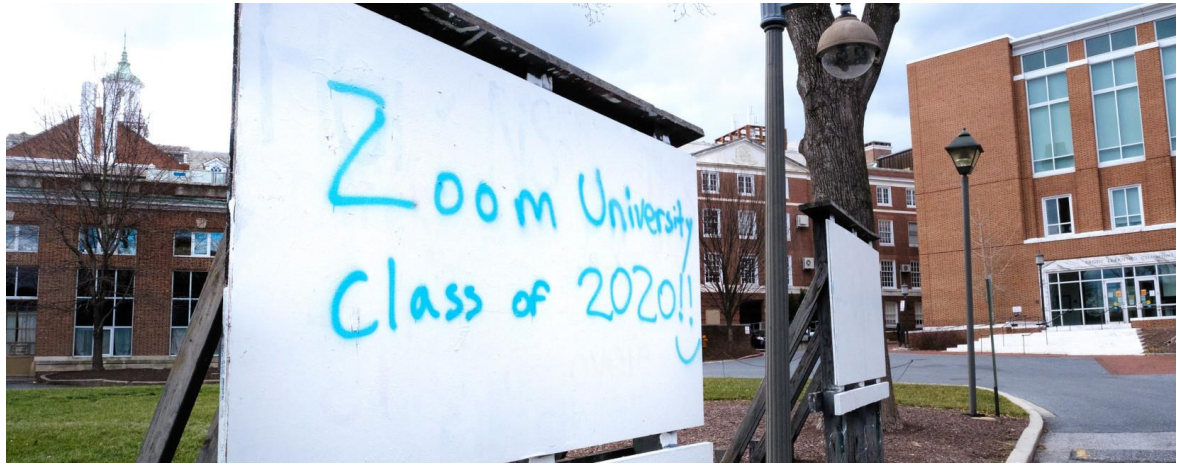 Zoom University
Class of 2020!!